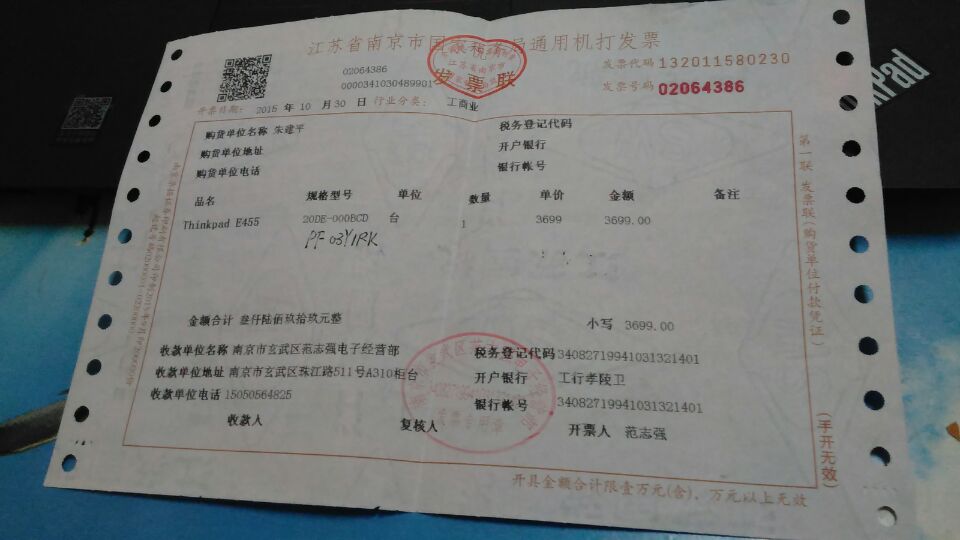 江苏省南京市国家税务局通用机打发票
发票联
发票代码 132011580230
发票号码 02064386
02064386
0000341030489901
开票日期: 2015 年 10 月 30 日 行业分类: 工商业
购货单位名称 朱建平
税务登记代码
购货单位地址
开户银行
购货单位电话
银行帐号
品名 规格型号 单位 数量 单价 金额 备注
Thinkpad E455 20DE-000BCD 台 1 3699 3699.00
PF-03Y1RK
金额合计 叁仟陆佰玖拾玖元整
小写 3699.00
收款单位名称 南京市玄武区范志强电子经营部
税务登记代码 34082719941031321401
收款单位地址 南京市玄武区珠江路511号A310柜台
开户银行 工行孝陵卫
收款单位电话 15050564825
银行帐号 34082719941031321401
收款人 复核人 开票人 范志强
开具金额合计限壹万元(含),万元以上无效
第一联 发票联(购货单位付款凭证)
(手开无效)
发票专用章